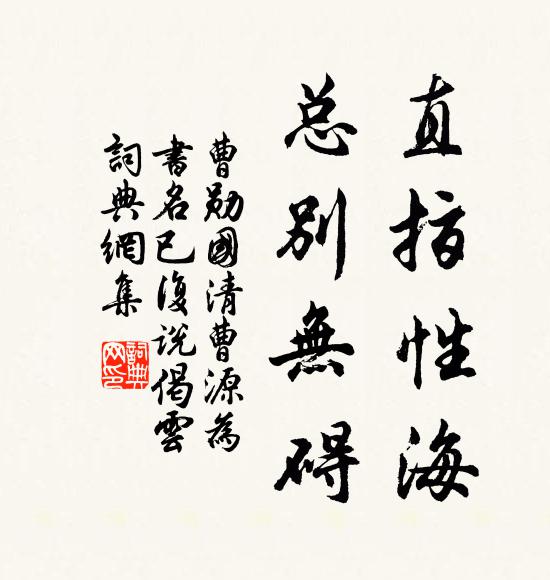 直指性海
总别無碍
曹勋國清曹源為
書名已復说偈雲
詞典網集
詞典网印